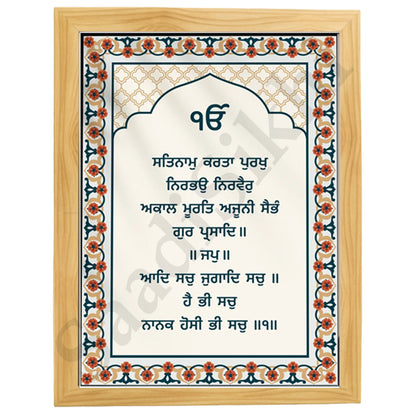 ੴ
ਸਤਿਨਾਮੁ ਕਰਤਾ ਪੁਰਖੁ
ਨਿਰਭਉ ਨਿਰਵੈਰੁ
ਅਕਾਲ ਮੂਰਤਿ ਅਜੂਨੀ ਸੈਭੰ
ਗੁਰ ਪ੍ਰਸਾਦਿ॥
॥ ਜਪੁ॥
ਆਦਿ ਸਚੁ ਜੁਗਾਦਿ ਸਚੁ ॥
ਹੈ ਭੀ ਸਚੁ
ਨਾਨਕ ਹੋਸੀ ਭੀ ਸਚੁ ॥੧॥